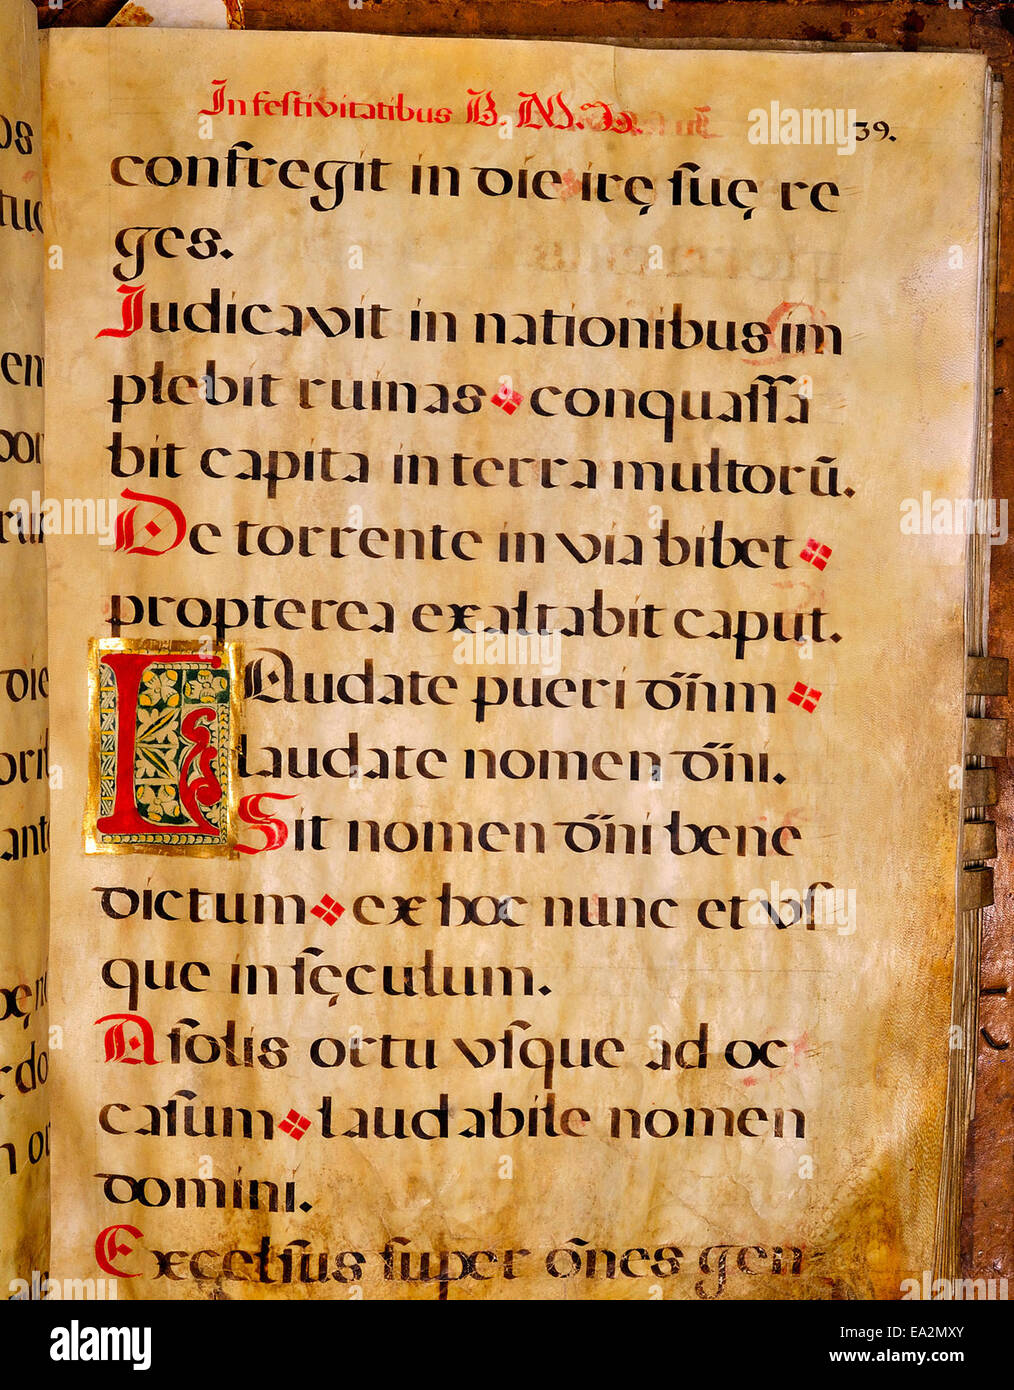 In festivitatibus B. M. V. 39.
confregit in die irę suę re
ges.
Judicavit in nationibus im
plebit ruinas conquassa
bit capita in terra multorū.
De torrente in via bibet
propterea exaltabit caput.
LAudate pueri dn̄m
laudate nomen dn̄i.
Sit nomen dn̄i bene
dictum ex hoc nunc et vs
que in sęculum.
A solis ortu vsque ad oc
casum laudabile nomen
domini.
Excelsus super om̄es gen-
alamy
Image ID: EA2MXY
www.alamy.com